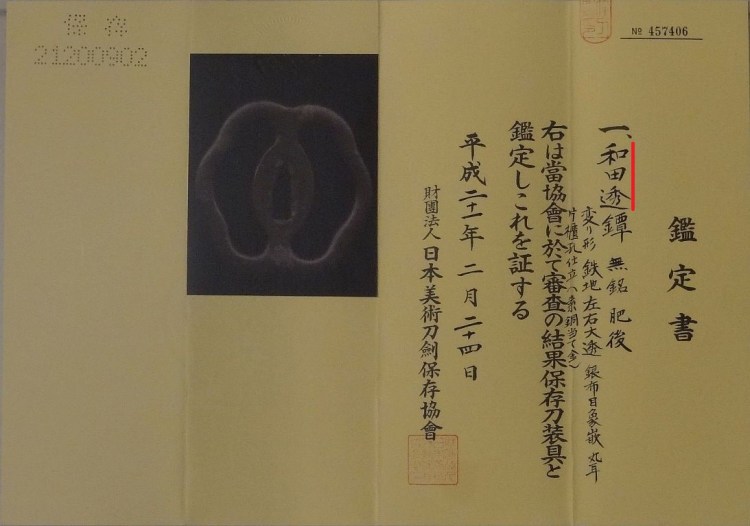 保存
21200902
№ 457406
鑑定書
一、和田透鐔 無銘 肥後
変り形 鉄地 左右大透 銀布目象嵌 丸耳
片櫃孔仕立(素銅当て金)
右は當協會に於て審査の結果保存刀装具と
鑑定しこれを証する
平成二十一年二月二十四日
財團法人 日本美術刀劍保存協會